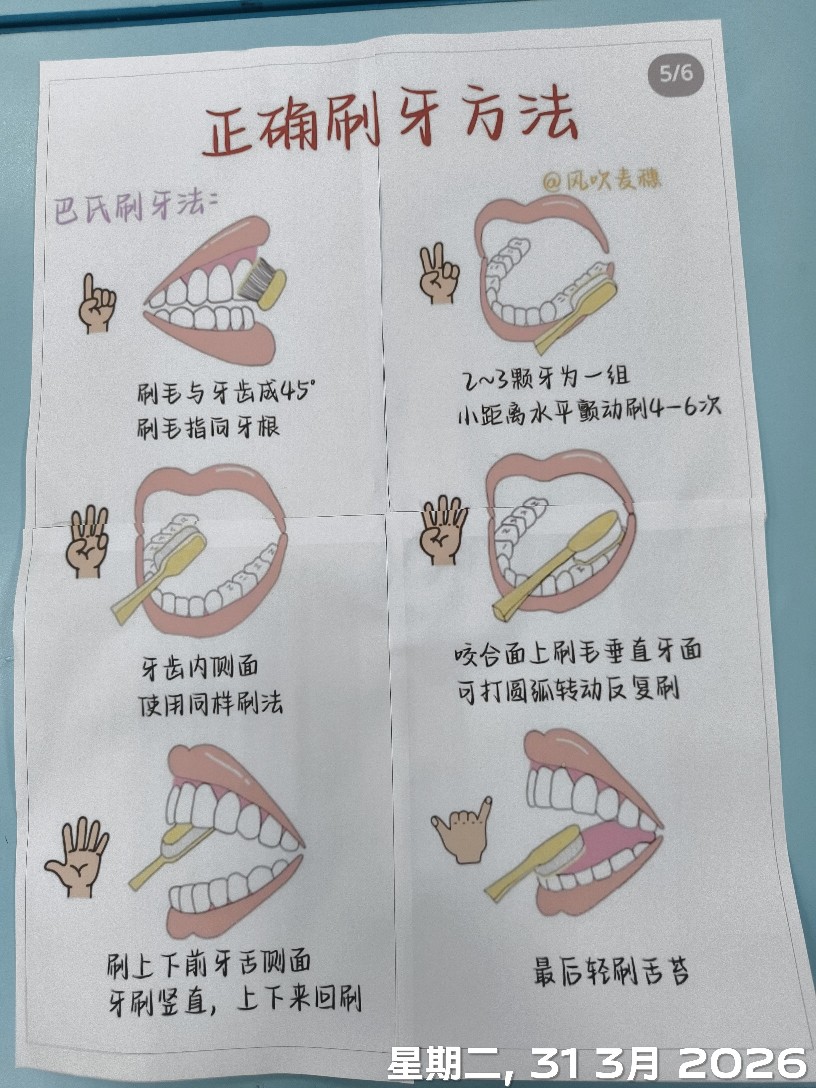 5/6
正确刷牙方法
@风吹麦穗
巴氏刷牙法:
刷毛与牙齿成45°
刷毛指向牙根
2~3颗牙为一组
小距离水平颤动刷4-6次
牙齿内侧面
使用同样刷法
咬合面上刷毛垂直牙面
可打圆弧转动反复刷
刷上下前牙舌侧面
牙刷竖直，上下来回刷
最后轻刷舌苔
星期二, 31 3月 2026